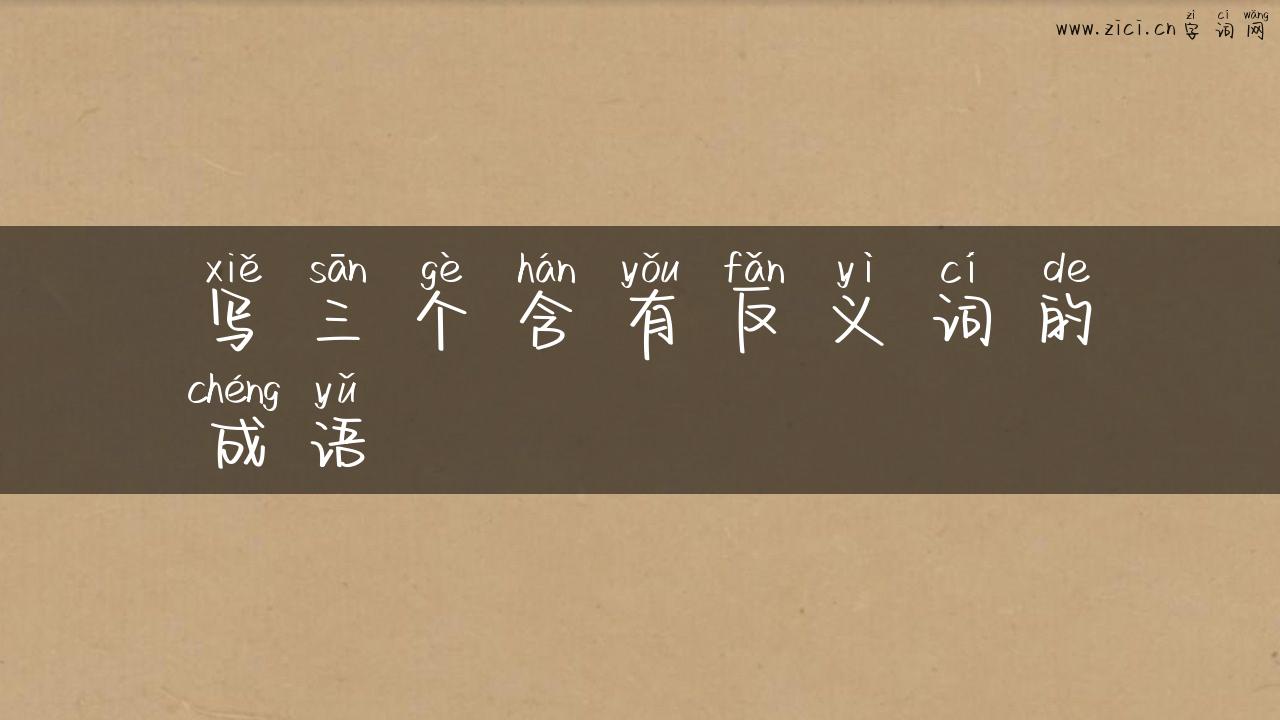 zì cí wǎng
www.zici.cn 字 词 网
xiě sān gè hán yǒu fǎn yì cí de
写 三 个 含 有 反 义 词 的
chéng yǔ
成 语